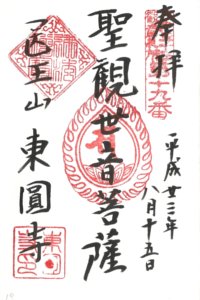 奉拝
十九番
平成廿三年
八月十五日
聖観世音菩薩
医王山
東圓寺